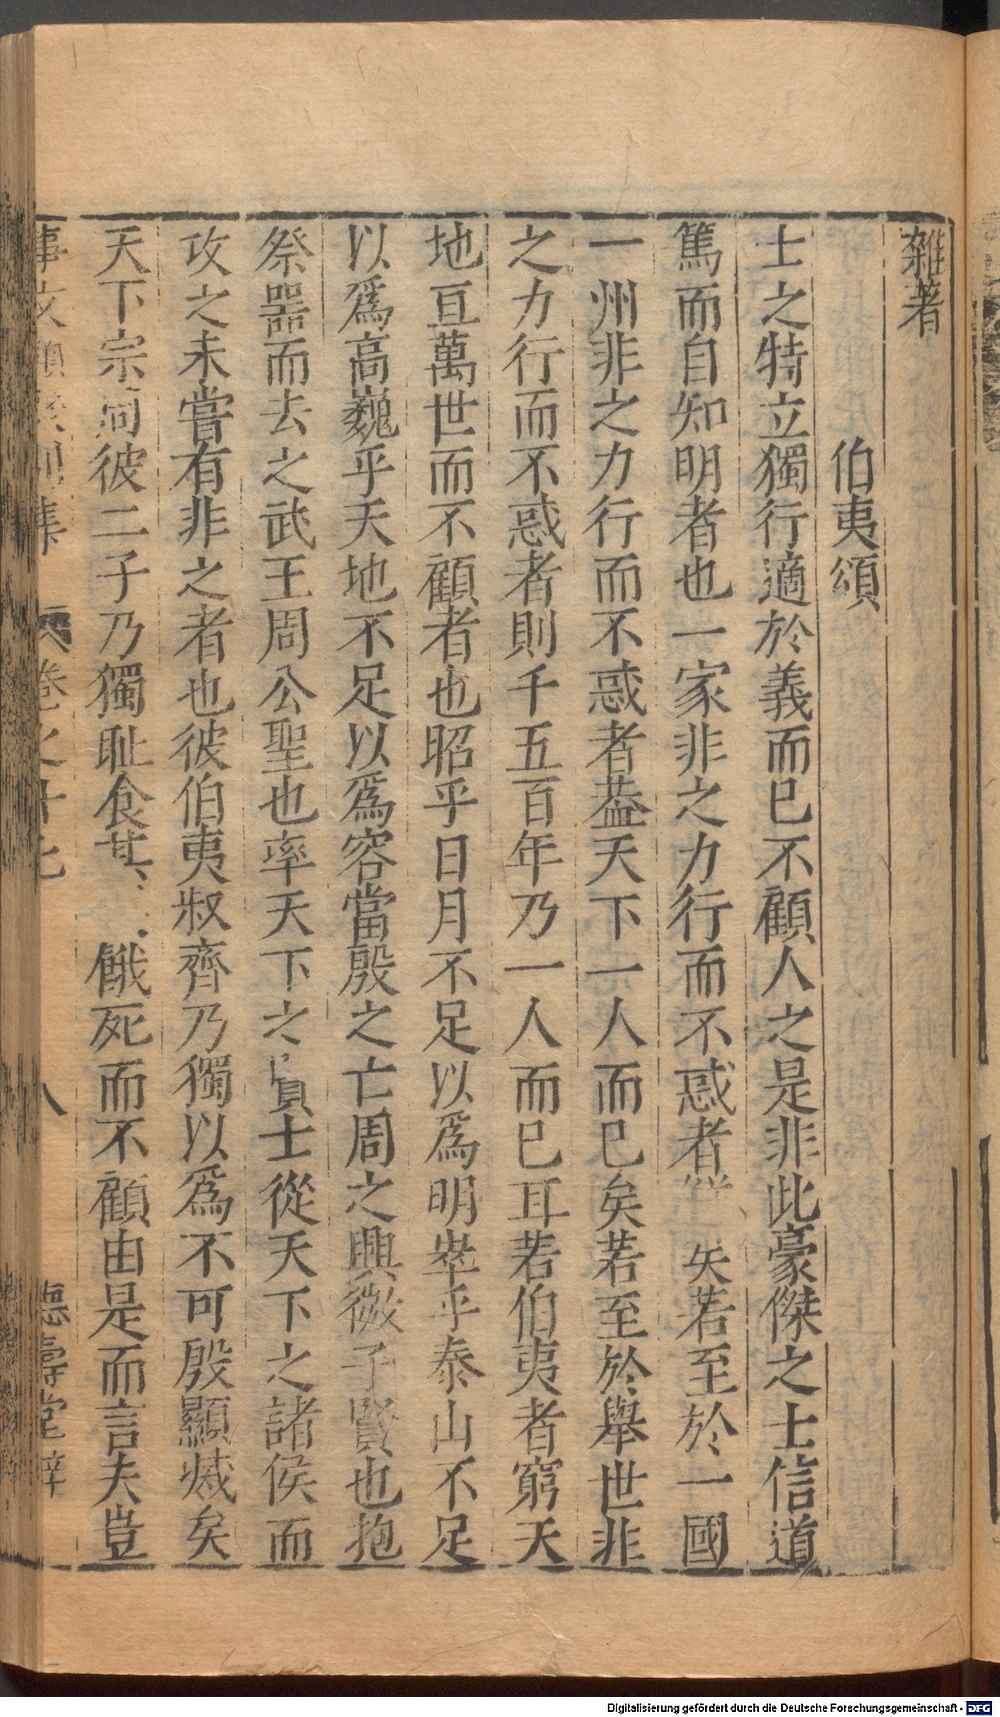 雜著
伯夷頌
士之特立獨行適於義而已不顧人之是非此豪傑之士信道
篤而自知明者也一家非之力行而不惑者 矣若至於一國
一州非之力行而不惑者葢天下一人而已矣若至於舉世非
之力行而不惑者則千五百年乃一人而已耳若伯夷者窮天
地亘萬世而不顧者也昭乎日月不足以爲明崒乎泰山不足
以爲高巍乎天地不足以爲容當殷之亡周之興微子賢也抱
祭噐而去之武王周公聖也率天下之 士從天下之諸侯而
攻之未嘗有非之者也彼伯夷叔齊乃獨以爲不可殷顯烕矣
天下宗 彼二子乃獨耻食其 餓死而不顧由是而言夫豈
卷之十七 八 德壽堂梓
Digitalisierung gefördert durch die Deutsche Forschungsgemeinschaft - DFG